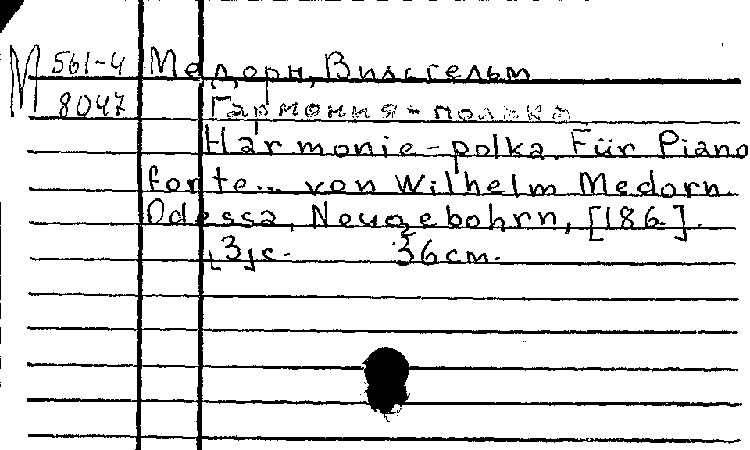 М 561-4 Медорн, Вильгельм
8047 Гармония-полька
Harmonie-polka Für Piano
forte... von Wilhelm Medorn.
Odessa, Neugebohrn, [186-].
[3]с. 36cm.